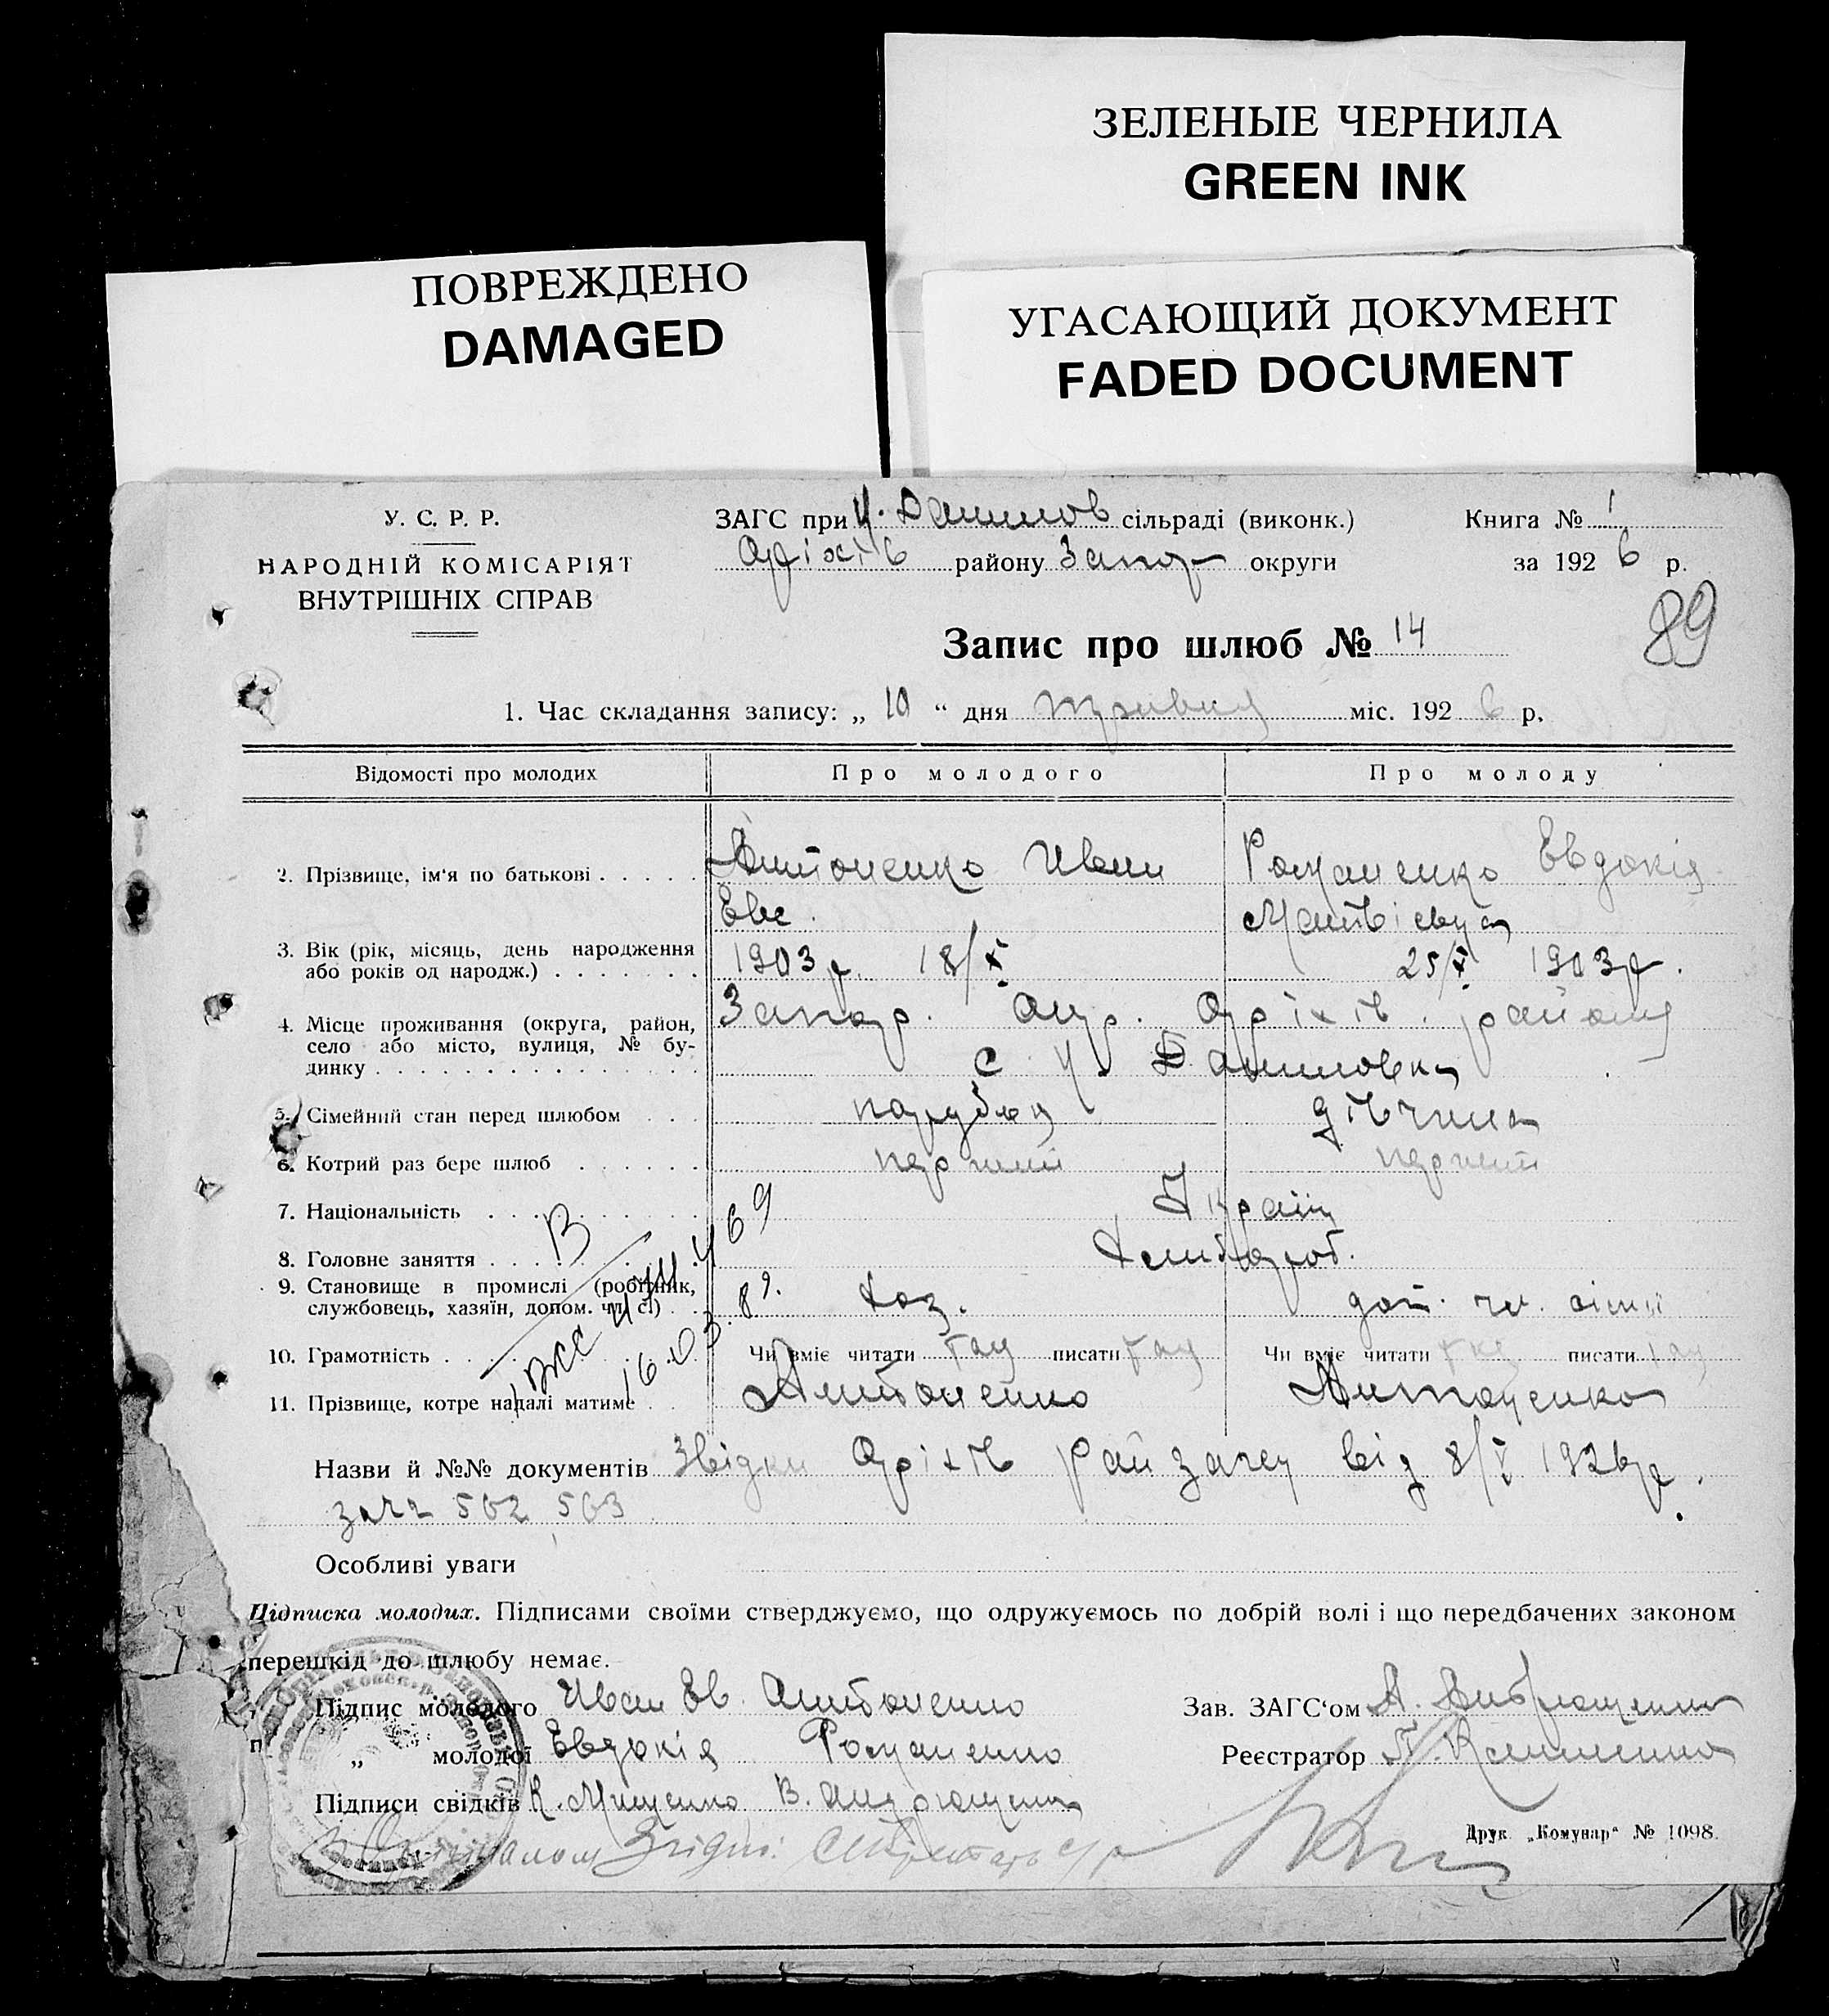 ЗЕЛЕНЫЕ ЧЕРНИЛА
GREEN INK
ПОВРЕЖДЕНО
DAMAGED
УГАСАЮЩИЙ ДОКУМЕНТ
FADED DOCUMENT
У. С. Р. Р.
НАРОДНІЙ КОМІСАРІЯТ
ВНУТРІШНІХ СПРАВ
ЗАГС при сільраді (виконк.)
Оріхів району Запор округи
Книга № 1
за 1926 р.
89
Запис про шлюб № 14
1. Час складання запису: „ 10 “ дня травня міс. 1926 р.
Відомості про молодих
Про молодого
Про молоду
2. Прізвище, ім'я по батькові
Антоненко Иван
Романенко Евдокія
Евс.
Матвіевна
3. Вік (рік, місяць, день народження
або років од народж.)
1903 р. 18/X
25/X 1903 р.
4. Місце проживання (округа, район,
село або місто, вулиця, № бу-
динку
Запор. окр. Оріхів. району
с
5. Сімейний стан перед шлюбом
парубок
дівчина
6. Котрий раз бере шлюб
перший
перший
7. Національність
Україн
8. Головне заняття
Хлибороб.
9. Становище в промислі (робітник,
службовець, хазяїн, допом. чл. с.)
хаз.
доп. чл. сімї
10. Грамотність
Чи вміє читати так писати так
Чи вміє читати так писати так
11. Прізвище, котре надалі матиме
Антоненко
Антоненко
В
469
16.03.89.
Назви й №№ документів Звідки Оріхів Райзагсу від 8/V 1926 р.
за ч ч 562, 563
Особливі уваги
Підписка молодих. Підписами своїми стверджуємо, що одружуємось по добрій волі і що передбачених законом
перешкід до шлюбу немає.
Підпис молодого Иван Ев. Антоненко
Зав. ЗАГС'ом А.
„ молодої Евдокія Романенко
Реєстратор
Підписи свідків К. Мищенко В. Андрющенко
Друк. „Комунар“ № 1098.
З Оригіналом Згідно: Секретарь с/р